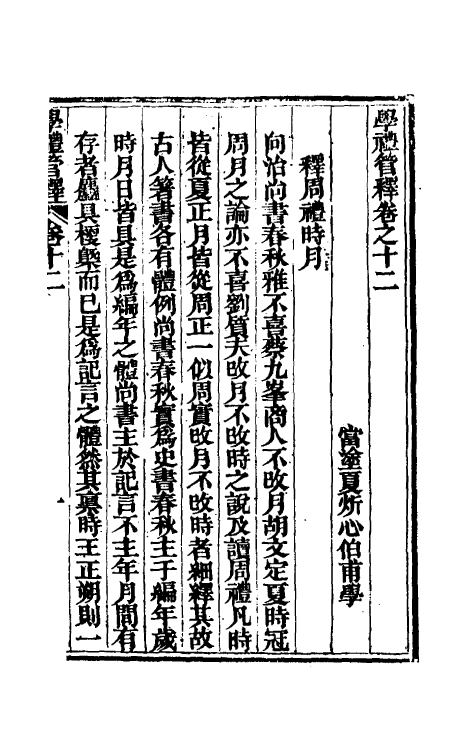 學禮管釋卷之十二
當塗夏炘心伯甫學
釋周禮時月
向治尚書春秋雅不喜蔡九峯商人不改月胡文定夏時冠
周月之論亦不喜劉質夫改月不改時之說及讀周禮凡時
皆從夏正月皆從周正一似周實改月不改時者細繹其故
古人著書各有體例尚書春秋實為史書春秋主于編年歲
時月日皆具是為編年之體尚書主於記言不主年月間有
存者麤具梗槩而已是為記言之體然其稟時王正朔則一
學禮管釋 卷十二